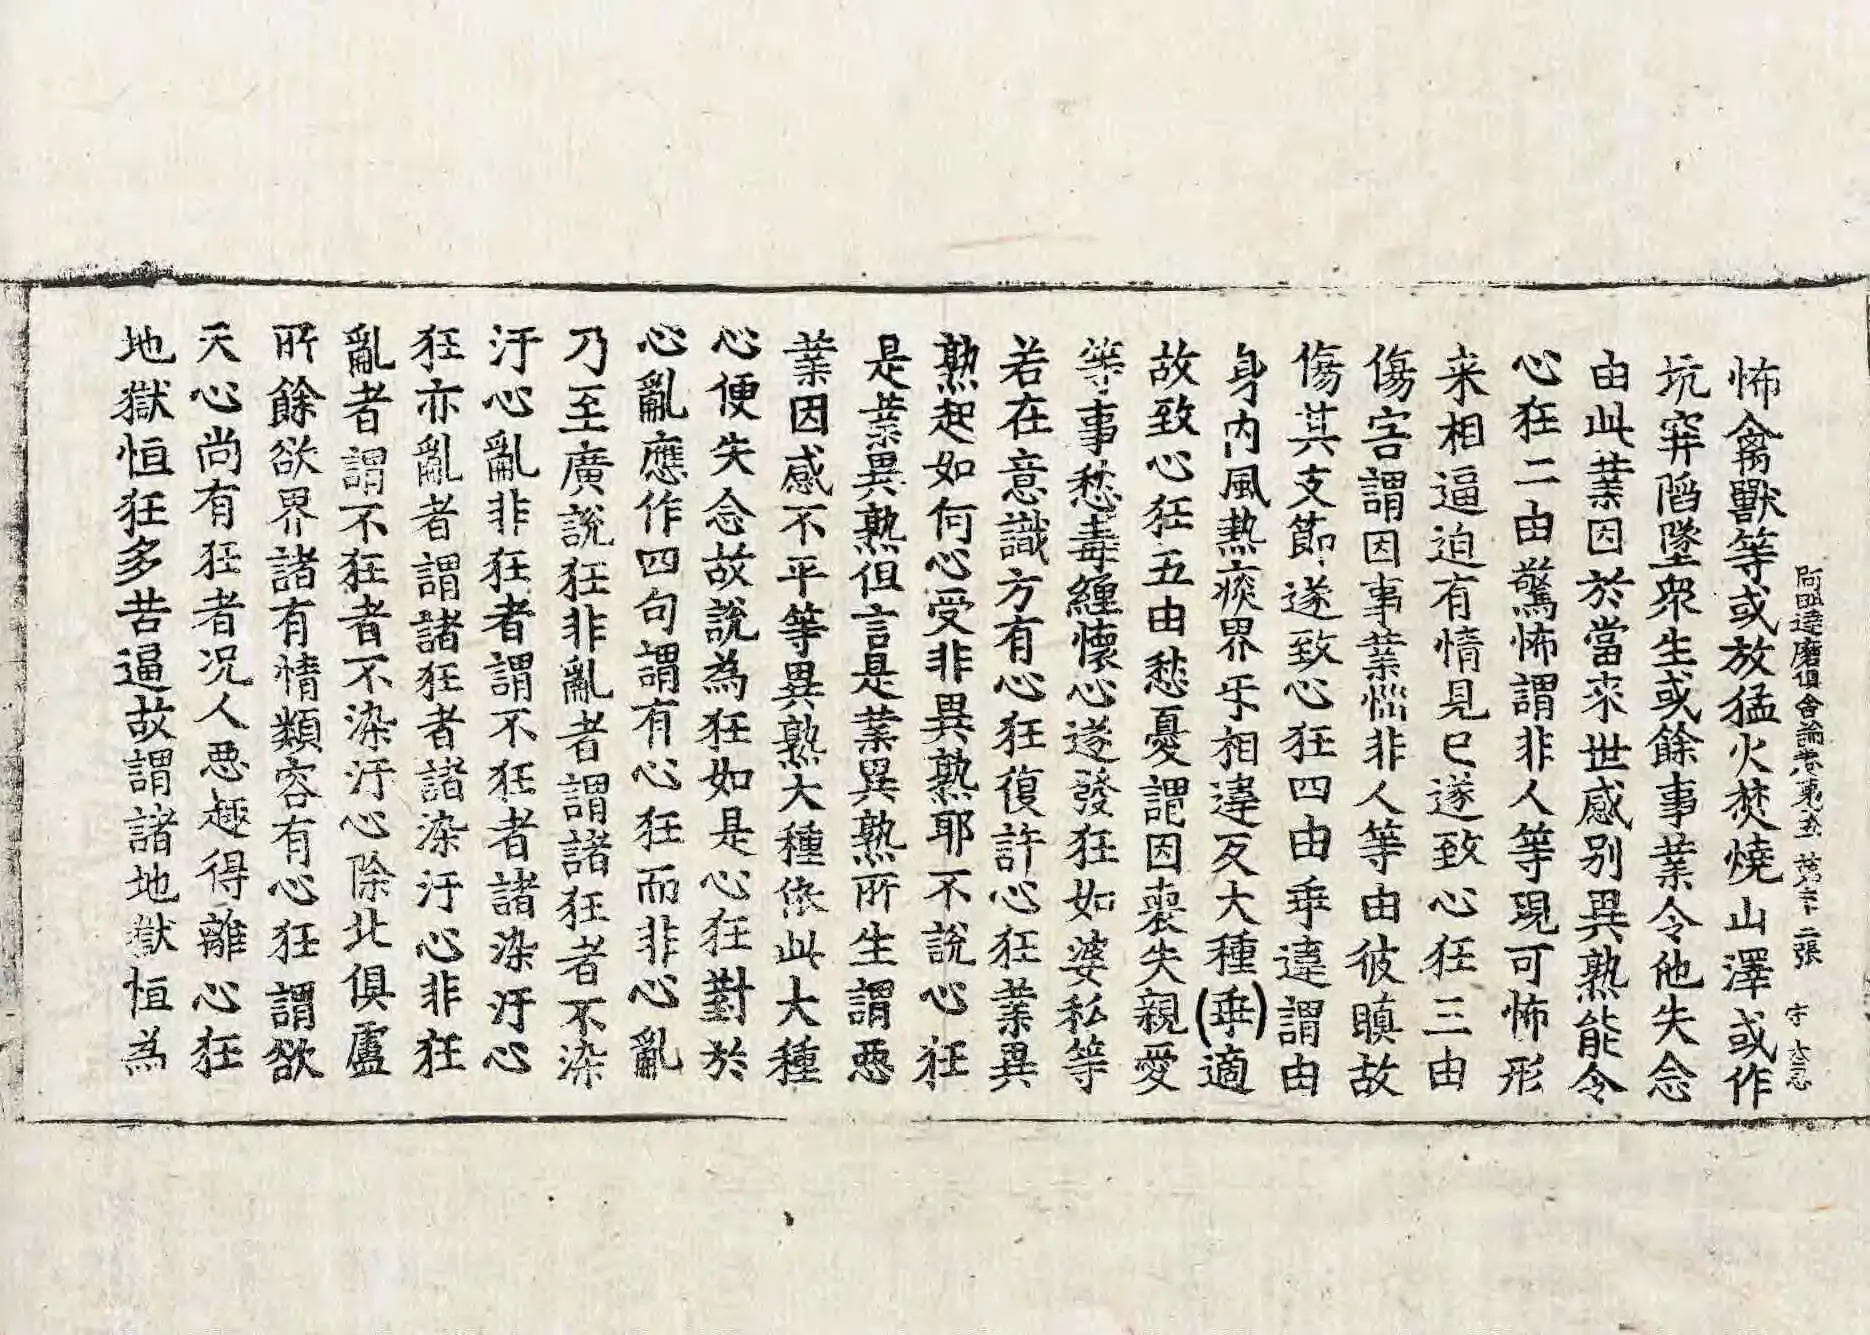 阿毗達磨俱舍論卷第十五 第十二張
怖禽獸等或放猛火焚燒山澤或作
坑穽陷墜眾生或餘事業令他失念
由此業因於當來世感別異熟能令
心狂二由驚怖謂非人等現可怖形
来相逼迫有情見已遂致心狂三由
傷害謂因事業惱非人等由彼瞋故
傷其支節遂致心狂四由乖違謂由
身內風熱痰界互相違反大種(乖)適
故致心狂五由愁憂謂因喪失親愛
等事愁毒纏懷心遂發狂如婆私等
若在意識方有心狂復許心狂業異
熟起如何心受非異熟耶不說心狂
是業異熟但言是業異熟所生謂惡
業因感不平等異熟大種依此大種
心便失念故說為狂如是心狂對於
心亂應作四句謂有心狂而非心亂
乃至廣說狂非亂者謂諸狂者不染
汙心亂非狂者謂不狂者諸染汙心
狂亦亂者謂諸狂者諸染汙心非狂
亂者謂不狂者不染汙心除北俱盧
所餘欲界諸有情類容有心狂謂欲
天心尚有狂者況人惡趣得離心狂
地獄恒狂多苦逼故謂諸地獄恒為